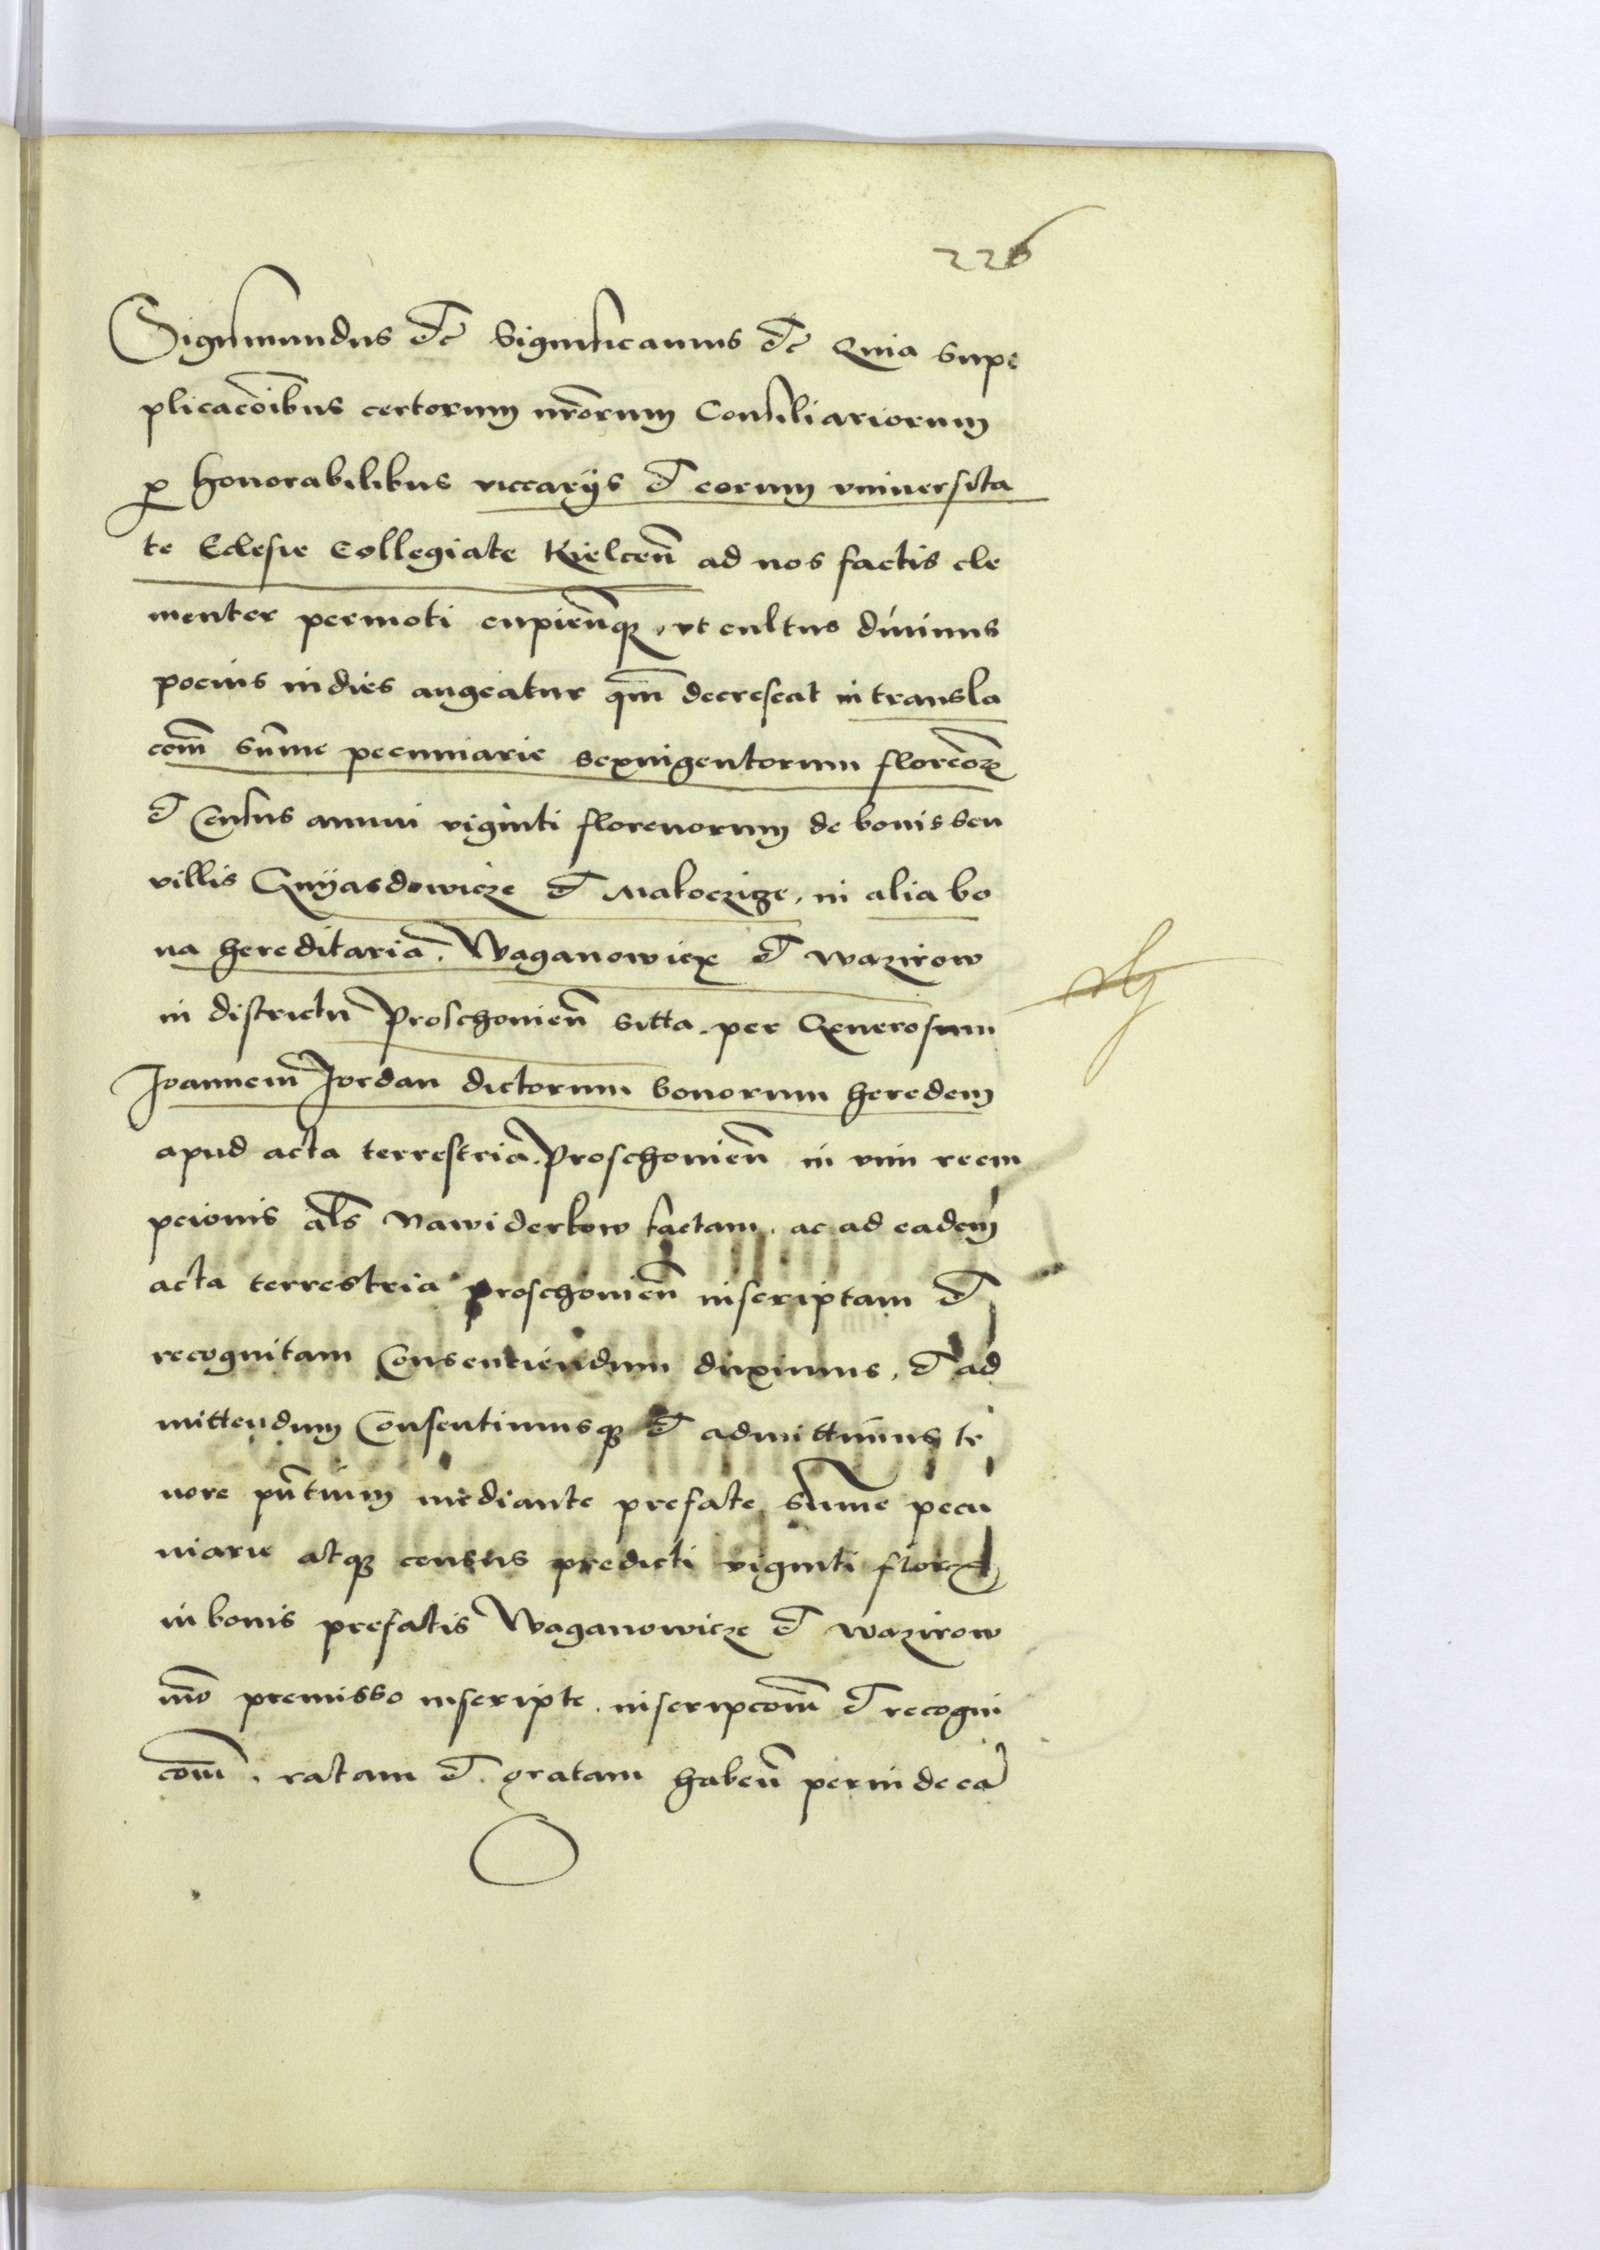 226
Sigismundus etc Significamus etc Quia supp
plicacōibus certorum nr̄orum Consiliariorum
p honorabilibus viccariis et eorum vniuersita
te Eclesie Collegiate Kielceñ ad nos factis cle
menter permoti cupieñq, vt cultus diuinus
pocius indies augeatur qm̄ decrescat in transla
com̄ sum̄e pecuniarie sexingentorum florenor
et Census annui viginti florenorum de bonis seu
villis Gnyasdowicze et Maloczicze, in alia bo
na hereditaria. Waganowicze et wazirow
in districtu Proschovieñ sitta. per Generosum
Joannem Jordan dictorum bonorum heredem
apud acta terrestria. Proschovieñ in vim reem
pcionis als̄ Nawiderkow factam. ac ad eadem
acta terrestria proschovieñ inscriptam et
recognitam Consentiendum duximus, et ad
mittendum Consentimusq et admittimus te
nore pn̄tium mediante prefate sum̄e pecu
niarie atq census predicti viginti flor
in bonis prefatis Waganowicze et wazirow
mo premisso inscripte. inscripcom̄ et recogni
com̄. ratam et gratam habeñ perinde ea